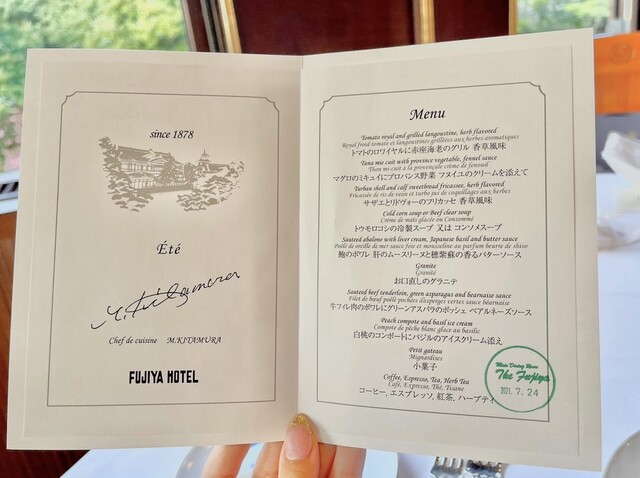 since 1878
Été
M.Kitamura
Chef de cuisine M.KITAMURA
FUJIYA HOTEL
Menu
Tomato royal and grilled langoustine, herb flavored
Royal froid tomate et langoustines grillées aux herbes aromatiques
トマトのロワイヤルに赤座海老のグリル 香草風味
Tuna mi cuit with province vegetable, fennel sauce
Thon mi-cuit à la provençale crème de fenouil
マグロのミキュイにプロバンス野菜 フヌイユのクリームを添えて
Turban shell and calf sweetbread fricassee, herb flavored
Fricassée de ris de veau et turbo jus de coquillages aux herbes
サザエとリドヴォーのフリカッセ 香草風味
Cold corn soup or Beef clear soup
Crème de maïs glacée ou Consommé
トウモロコシの冷製スープ 又は コンソメスープ
Sauteed abalone with liver cream, Japanese basil and butter sauce
Poêlé de oreille de mer sauce foie et mousseline au parfum beurre de shiso
鮑のポワレ 肝のムースリーヌと穂紫蘇の香るバターソース
Granite
Granité
お口直しのグラニテ
Sauteed beef tenderloin, green asparagus and bearnaise sauce
Filet de bœuf poêlé pochées d'asperges vertes sauce béarnaise
牛フィレ肉のポワレにグリーンアスパラのポッシェ ベアルネーズソース
Peach compote and basil ice cream
Compote de pêche blanc glace au basilic
白桃のコンポートにバジルのアイスクリーム添え
Petit gateau
Mignardises
小菓子
Coffee, Espresso, Tea, Herb Tea
Café, Expresso, Thé, Tisane
コーヒー, エスプレッソ, 紅茶, ハーブティ
Main Dining Room
The Fujiya
2021. 7. 24